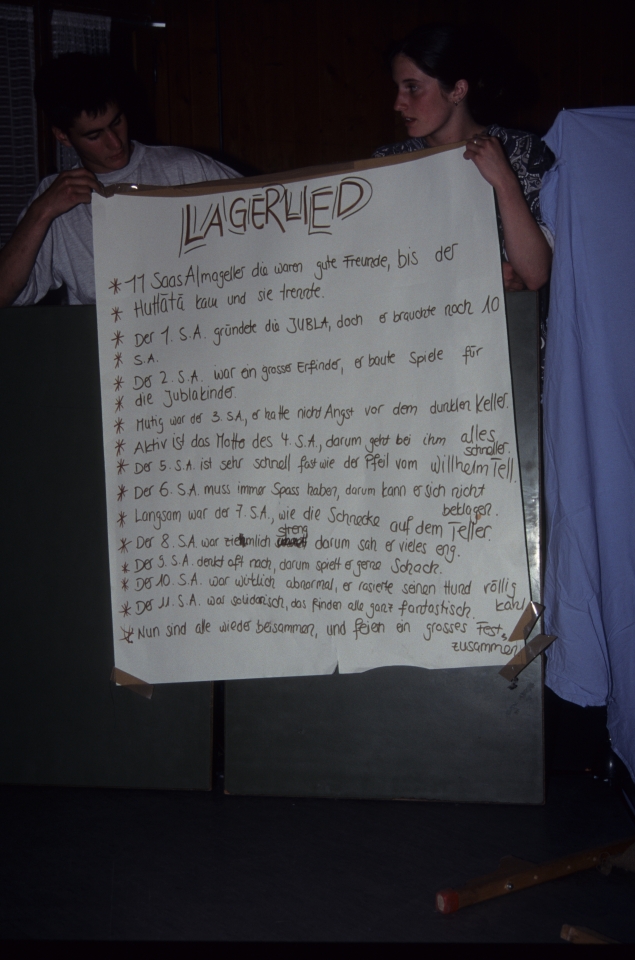 LAGERLIED
* 11 SaasAlmageller die waren gute Freunde, bis der
* Huttätä kam und sie trennte.
* Der 1. S.A. gründete die JUBLA, doch er brauchte noch 10
* S.A.
* Der 2. S.A. war ein grosser Erfinder, er baute Spiele für
* die Jublakinder.
* Mutig war der 3. SA, er hatte nicht Angst vor dem dunklen Keller.
* Aktiv ist das Motto des 4. S.A., darum geht bei ihm alles
schneller.
* Der 5. S.A. ist sehr schnell fast wie der Pfeil vom Willhelm Tell.
* Der 6. S.A. muss immer Spass haben, darum kann er sich nicht
beklagen.
* Langsam war der 7. S.A., wie die Schnecke auf dem Teller.
* Der 8. S.A. war ziehmlich streng darum sah er vieles eng.
* Der 9. S.A. denkt oft nach, darum spielt er gerne Schach.
* Der 10. S.A. war wirklich abnormal, er rasierte seinen Hund völlig
kahl
* Der 11. S.A. was solidarisch, das finden alle ganz fantastisch.
* Nun sind alle wieder beisammen, und feiern ein grosses Fest
zusammen